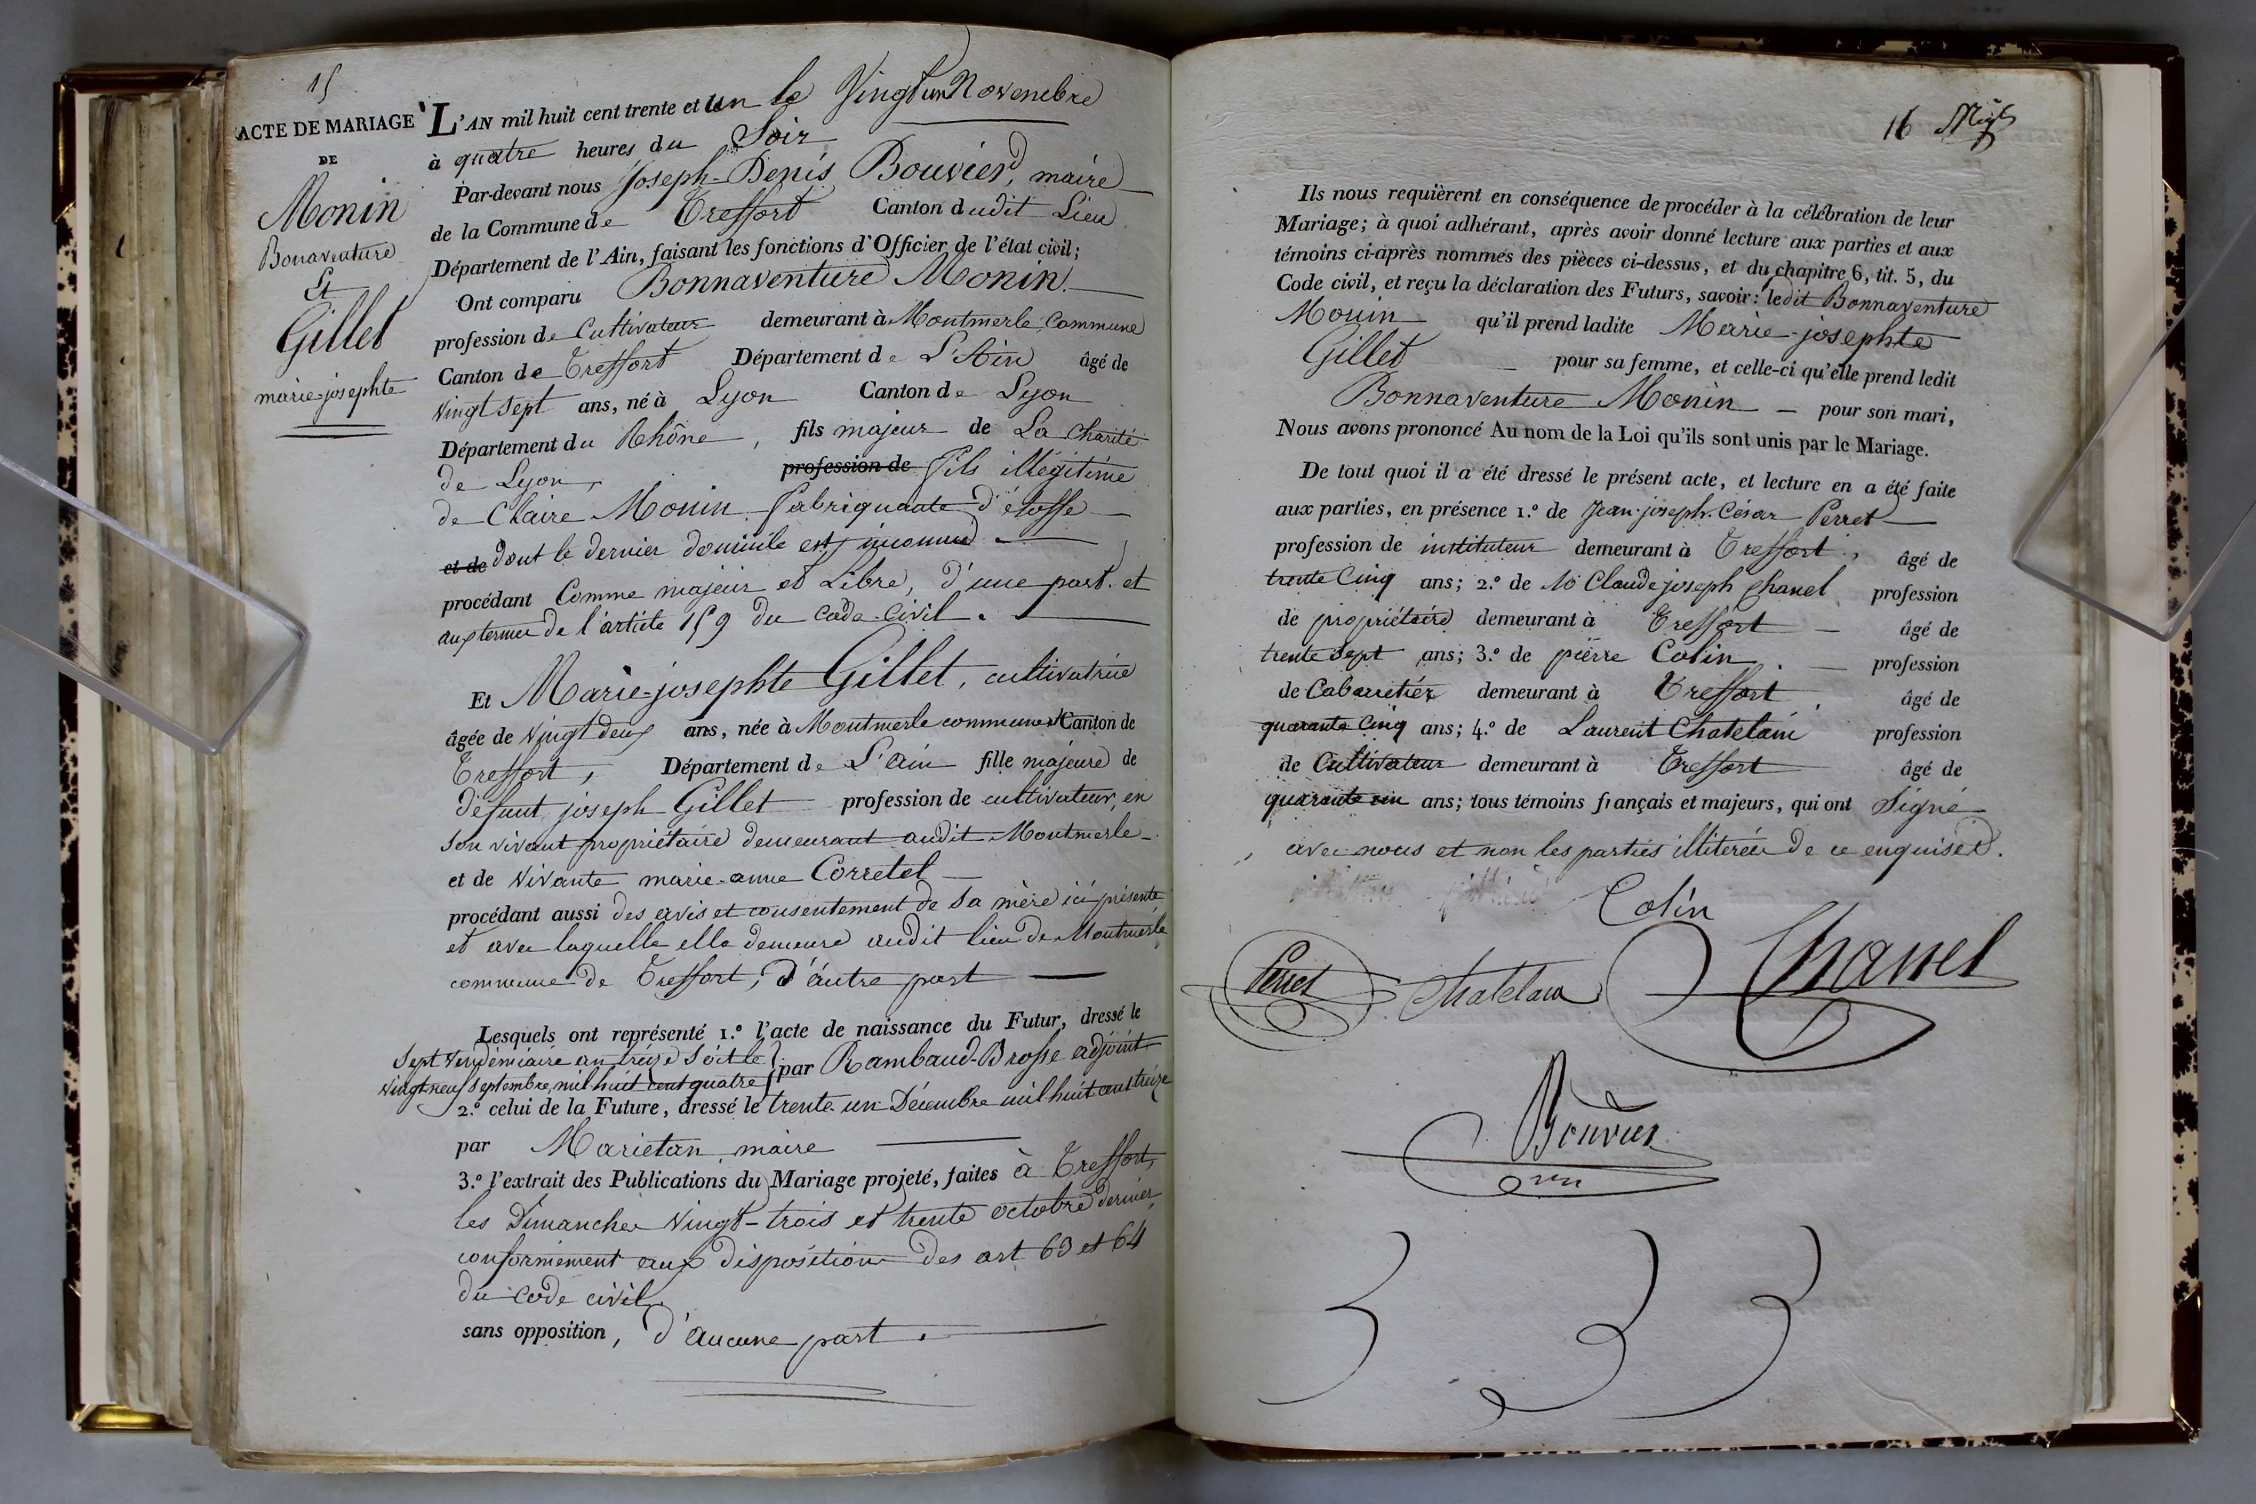 15
ACTE DE MARIAGE
DE
Monin
Bonaventure
Et
Gillet
marie-josephte
L'AN mil huit cent trente et un le Vingt un Novembre
à quatre heures du Soir
Par-devant nous Joseph-Denis Bouvier, maire
de la Commune de Treffort Canton dudit Lieu
Département de l'Ain, faisant les fonctions d'Officier de l'état civil;
Ont comparu Bonnaventure Monin
profession de Cultivateur demeurant à Montmerle, Commune
Canton de Treffort Département de L'Ain âgé de
vingt sept ans, né à Lyon Canton de Lyon
Département du Rhône, fils majeur de La charité
de Lyon, profession de fils illégitime
de Claire Monin fabriquante d'étoffe
et de dont le dernier domicile est inconnu
procédant Comme majeur et Libre, d'une part. et
aux termes de l'article 159 du code civil.
Et Marie-josephte Gillet, cultivatrice
âgée de vingt deux ans, née à Montmerle commune et Canton de
Treffort, Département de L'ain fille majeure de
défunt joseph Gillet profession de cultivateur, en
son vivant propriétaire demeurant audit Montmerle
et de vivante marie-anne Corretel
procédant aussi des avis et consentement de sa mère ici présente
et avec laquelle elle demeure audit lieu de Montmerle
commune de Treffort, d'autre part
Lesquels ont représenté 1.º l'acte de naissance du Futur, dressé le
sept vendémiaire an treize soit le
vingt neuf septembre, mil huit cent quatre par Rambaud-Brosse adjoint
2.º celui de la Future, dressé le trente un Décembre mil huit cent treize
par Marietan, maire
3.º l'extrait des Publications du Mariage projeté, faites à Treffort,
les Dimanches Vingt-trois et trente octobre dernier,
conformément aux dispositions des art 63 et 64
du code civil,
sans opposition, d'aucune part.
16
Ils nous requièrent en conséquence de procéder à la célébration de leur
Mariage; à quoi adhérant, après avoir donné lecture aux parties et aux
témoins ci-après nommés des pièces ci-dessus, et du chapitre 6, tit. 5, du
Code civil, et reçu la déclaration des Futurs, savoir: ledit Bonnaventure
Monin qu'il prend ladite Marie-josephte
Gillet pour sa femme, et celle-ci qu'elle prend ledit
Bonnaventure Monin pour son mari,
Nous avons prononcé Au nom de la Loi qu'ils sont unis par le Mariage.
De tout quoi il a été dressé le présent acte, et lecture en a été faite
aux parties, en présence 1.º de Jean-joseph-César Perret
profession de instituteur demeurant à Treffort, âgé de
trente Cinq ans; 2.º de Claude joseph Chanel profession
de propriétaire demeurant à Treffort âgé de
trente sept ans; 3.º de pierre Colin profession
de Cabaretier demeurant à Treffort âgé de
quarante Cinq ans; 4.º de Laurent Chatelain profession
de Cultivateur demeurant à Treffort âgé de
quarante un ans; tous témoins français et majeurs, qui ont Signé
avec nous et non les parties illiterées de ce enquises.
Colin
Perret Chatelain Chanel
Bouvier